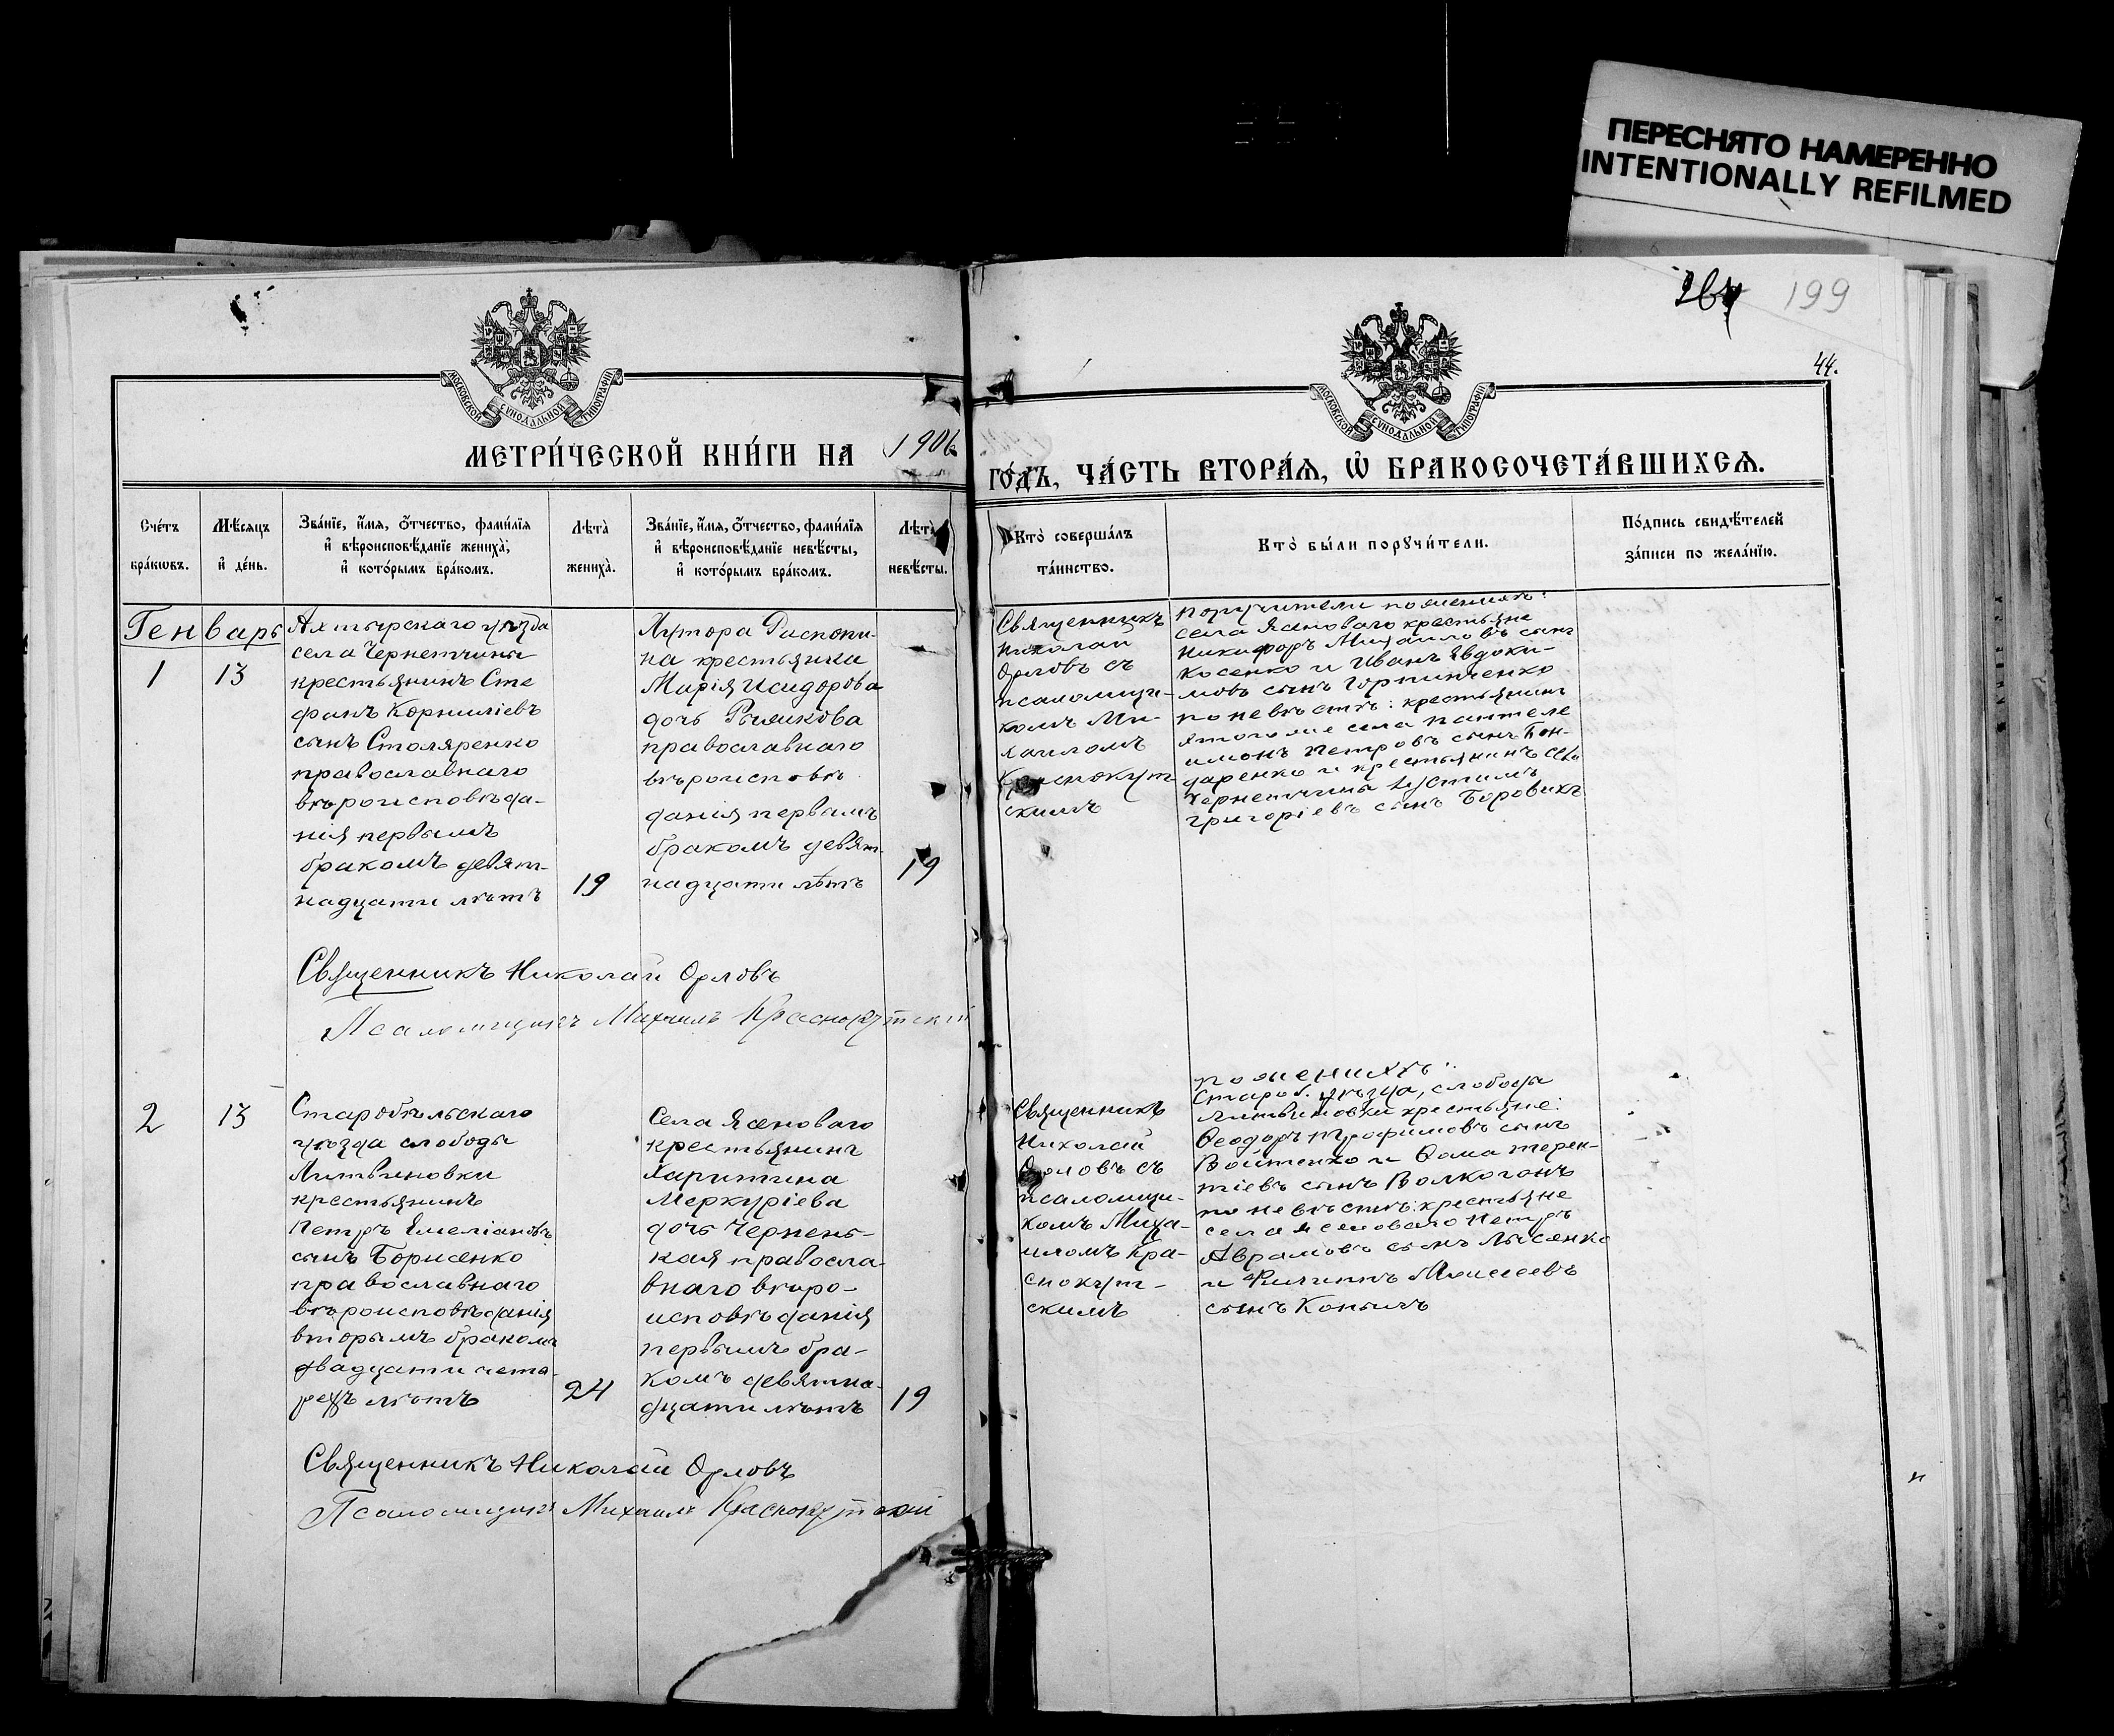 ПЕРЕСНЯТО НАМЕРЕННО
INTENTIONALLY REFILMED
199
44.
МОСКОВСКОЙ СѴНОДАЛЬНОЙ ТИПОГРАФІИ
МОСКОВСКОЙ СѴНОДАЛЬНОЙ ТИПОГРАФІИ
МЕТРИ́ЧЕСКОЙ КНИ́ГИ НА 1906
ГО́ДЪ, ЧА́СТЬ ВТОРА́Ѧ, Ѡ҆ БРАКОСОЧЕТА́ВШИХСѦ.
Сче́тъ
бра́кѡвъ.
Мѣ́сѧцъ
и҆ де́нь.
Зва́нїе, и҆́мѧ, о҆́тчество, фами́лїѧ
и҆ вѣроисповѣ́данїе жениха̀,
и҆ кото́рымъ бра́комъ.
Лѣта̀
жениха̀.
Зва́нїе, и҆́мѧ, о҆́тчество, фами́лїѧ
и҆ вѣроисповѣ́данїе невѣ́сты,
и҆ кото́рымъ бра́комъ.
Лѣта̀
невѣ́сты.
Кто̀ соверша́лъ
та́инство.
Кто̀ бы́ли порꙋчи́тели.
По́дпись свидѣ́телей
за́писи по жела́нїю.
Генварь
1
13
Ахтырскаго уѣзда
села Чернетчины
крестьянинъ Сте
фанъ Корниліевъ
сынъ Столяренко
православнаго
вѣроисповѣда-
нія первымъ
бракомъ девят-
надцати лѣтъ
19
Хутора Распопи-
на крестьянка
Марія Исидорова
дочь Рымикова
православнаго
вѣроисповѣ
данія первымъ
бракомъ девят-
надцати лѣтъ
19
Священникъ
Николай
Орловъ съ
псаломщи-
комъ Ми-
хаиломъ
Краснокут
скимъ
поручители по женихѣ:
села Ясеноваго крестьяне
Никифоръ Михаиловъ сынъ
Косенко и Иванъ Явдоки-
мовъ сынъ Горпинченко
по невѣстѣ: крестьянинъ
этого же села Пантеле
имонъ Петровъ сынъ Бон-
даренко и крестьянинъ села
Чернетчины Іустимъ
Григоріевъ сынъ Боровикъ
Священникъ Николай Орловъ
Псаломщикъ Михаилъ Краснокутскій
2
13
Старобѣльскаго
уѣзда слободы
Литвиновки
крестьянинъ
Петръ Емеліановъ
сынъ Борисенко
православнаго
вѣроисповѣданія
вторымъ бракомъ
двадцати четы-
рехъ лѣтъ
24
Села Ясеноваго
крестьянинъ
Харитина
Меркуріева
дочь Чернень-
кая правосла-
внаго вѣро-
исповѣданія
первымъ бра-
комъ девятна-
дцати лѣтъ
19
Священникъ
Николай
Орловъ съ
псаломщи-
комъ Миха-
иломъ Кра-
снокут-
скимъ
по женихѣ:
Староб. уѣзда, слободы
Литвиновки крестьяне:
Ѳеодоръ Трофимовъ сынъ
Войтенко и Ѳома Терен-
тіевъ сынъ Волкогонъ
по невѣстѣ: крестьяне
села Ясеноваго Петръ
Аврамовъ сынъ Лысенко
и Филиппъ Моисеевъ
сынъ Копылъ
Священникъ Николай Орловъ
Псаломщикъ Михаилъ Краснокутскій